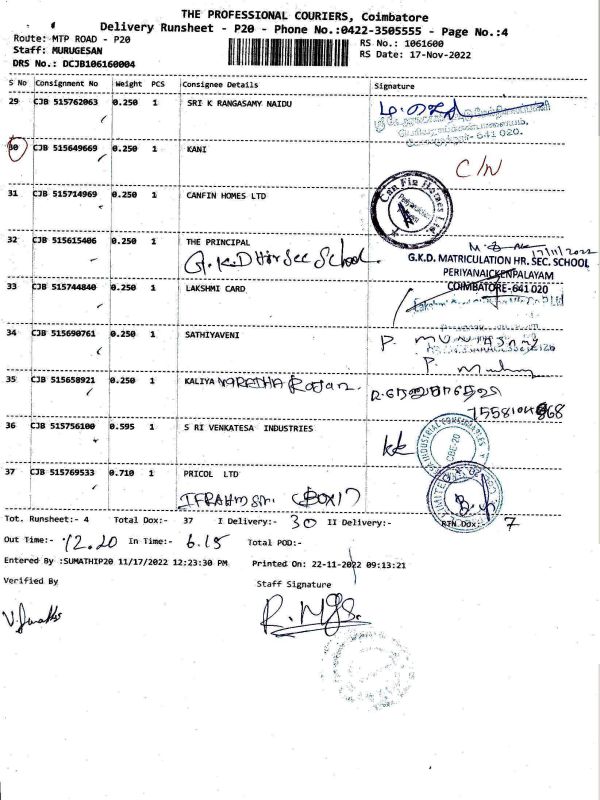 THE PROFESSIONAL COURIERS, Coimbatore
Delivery Runsheet - P20 - Phone No.:0422-3505555 - Page No.:4
Route: MTP ROAD - P20
RS No.: 1061600
Staff: MURUGESAN
RS Date: 17-Nov-2022
DRS No.: DCJB106160004
S No Consignment No Weight PCS Consignee Details Signature
29 CJB 515762063 0.250 1 SRI K RANGASAMY NAIDU
641 020.
30 CJB 515649669 0.250 1 KANI C/N
31 CJB 515714969 0.250 1 CANFIN HOMES LTD
Can Fin Homes Ltd
32 CJB 515615406 0.250 1 THE PRINCIPAL
G.K.D Hr Sec School
17/11/2022
G.K.D. MATRICULATION HR. SEC. SCHOOL
PERIYANAICKENPALAYAM
COIMBATORE-641 020
33 CJB 515744840 0.250 1 LAKSHMI CARD
34 CJB 515690761 0.250 1 SATHIYAVENI
P.
P.
35 CJB 515658921 0.250 1 KALIYA VARATHA Rajan
36 CJB 515756100 0.595 1 S RI VENKATESA INDUSTRIES
INDUSTRIAL CONSUMABLES
CBE-20
37 CJB 515769533 0.710 1 PRICOL LTD
Tot. Runsheet:- 4 Total Dox:- 37 I Delivery:- 30 II Delivery:- RTN Dox: 7
Out Time:- 12.20 In Time:- 6.15 Total POD:-
Entered By :SUMATHIP20 11/17/2022 12:23:30 PM Printed On: 22-11-2022 09:13:21
Verified By Staff Signature